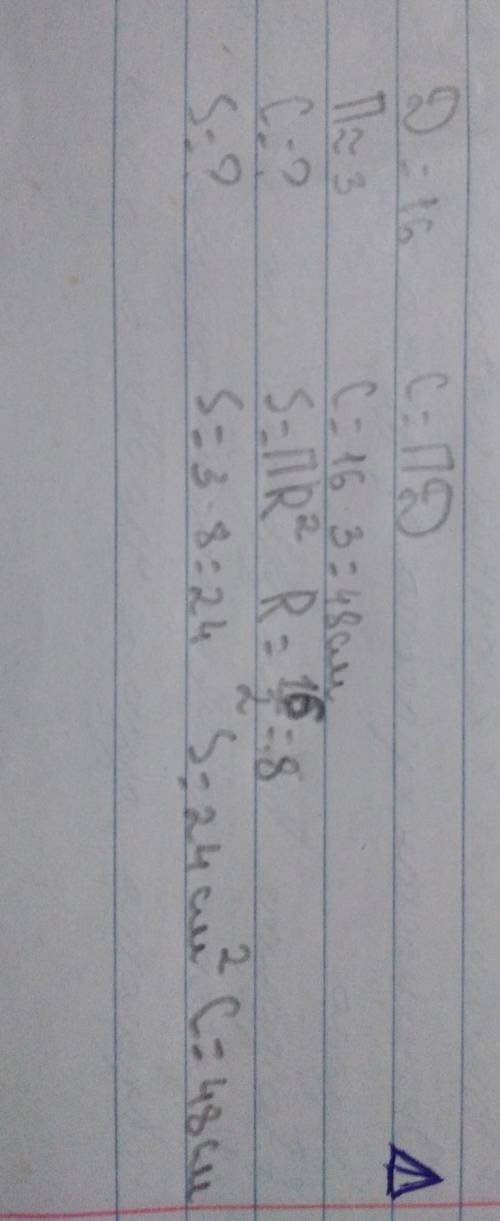 D = 16 C = ПD
П ≈ 3 C = 16 · 3 = 48 см
C = ? S = ПR² R = 16/2 = 8
S = ? S = 3 · 8 = 24 S = 24 см² C = 48 см